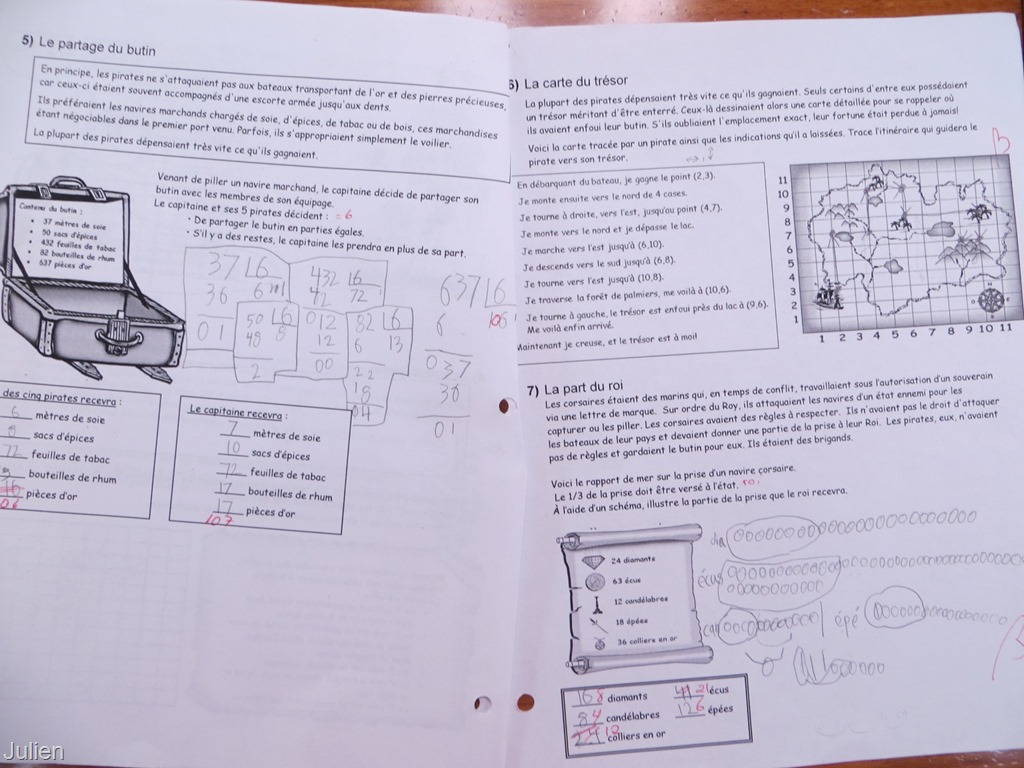 5) Le partage du butin
En principe, les pirates ne s'attaquaient pas aux bateaux transportant de l'or et des pierres précieuses,
car ceux-ci étaient souvent accompagnés d'une escorte armée jusqu'aux dents.
Ils préféraient les navires marchands chargés de soie, d'épices, de tabac ou de bois, ces marchandises
étant négociables dans le premier port venu. Parfois, ils s'appropriaient simplement le voilier.
La plupart des pirates dépensaient très vite ce qu'ils gagnaient.
Venant de piller un navire marchand, le capitaine décide de partager son
butin avec les membres de son équipage.
Le capitaine et ses 5 pirates décident : = 6
• De partager le butin en parties égales.
• S'il y a des restes, le capitaine les prendra en plus de sa part.
Contenu du butin :
• 37 mètres de soie
• 50 sacs d'épices
• 432 feuilles de tabac
• 82 bouteilles de rhum
• 637 pièces d'or
37 6
36 6 m
01
50 6
48 8
2
432 6
42 72
012
12
00
82 6
6 13
22
18
04
637 6
6 106
037
36
01
des cinq pirates recevra :
6 mètres de soie
8 sacs d'épices
72 feuilles de tabac
bouteilles de rhum
pièces d'or
Le capitaine recevra :
7 mètres de soie
10 sacs d'épices
72 feuilles de tabac
17 bouteilles de rhum
17 pièces d'or
107
6) La carte du trésor
La plupart des pirates dépensaient très vite ce qu'ils gagnaient. Seuls certains d'entre eux possédaient
un trésor méritant d'être enterré. Ceux-là dessinaient alors une carte détaillée pour se rappeler où
ils avaient enfoui leur butin. S'ils oubliaient l'emplacement exact, leur fortune était perdue à jamais!
Voici la carte tracée par un pirate ainsi que les indications qu'il a laissées. Trace l'itinéraire qui guidera le
pirate vers son trésor.
En débarquant du bateau, je gagne le point (2,3).
Je monte ensuite vers le nord de 4 cases.
Je tourne à droite, vers l'est, jusqu'au point (4,7).
Je monte vers le nord et je dépasse le lac.
Je marche vers l'est jusqu'à (6,10).
Je descends vers le sud jusqu'à (6,8).
Je tourne vers l'est jusqu'à (10,8).
Je traverse la forêt de palmiers, me voilà à (10,6).
Je tourne à gauche, le trésor est enfoui près du lac à (9,6).
Me voilà enfin arrivé.
Maintenant je creuse, et le trésor est à moi!
11
10
9
8
7
6
5
4
3
2
1
1 2 3 4 5 6 7 8 9 10 11
7) La part du roi
Les corsaires étaient des marins qui, en temps de conflit, travaillaient sous l'autorisation d'un souverain
via une lettre de marque. Sur ordre du Roy, ils attaquaient les navires d'un état ennemi pour les
capturer ou les piller. Les corsaires avaient des règles à respecter. Ils n'avaient pas le droit d'attaquer
les bateaux de leur pays et devaient donner une partie de la prise à leur Roi. Les pirates, eux, n'avaient
pas de règles et gardaient le butin pour eux. Ils étaient des brigands.
Voici le rapport de mer sur la prise d'un navire corsaire.
Le 1/3 de la prise doit être versé à l'état. roi
À l'aide d'un schéma, illustre la partie de la prise que le roi recevra.
24 diamants
63 écus
12 candélabres
18 épées
36 colliers en or
dia
écus
can
épé
168 diamants
21 écus
84 candélabres
126 épées
12 colliers en or
Julien